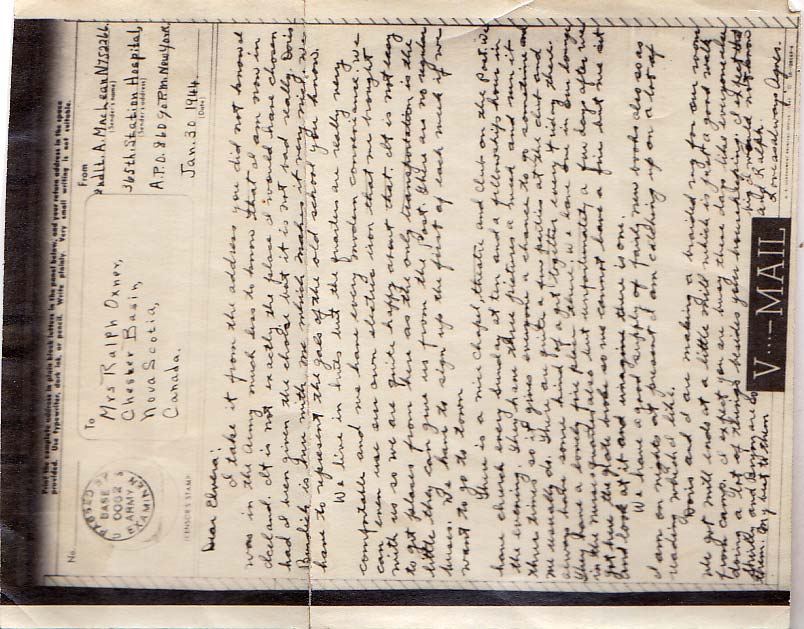 Print the complete address in plain block letters in the panel below, and your return address in the space
provided. Use typewriter, dark ink, or pencil. Write plainly. Very small writing is not suitable.
No.
To
Mrs Ralph Oxner,
Chester Basin,
Nova Scotia,
Canada.
From
2nd Lt. A. MacLean N752266
(Sender's name)
365th Station Hospital,
(Sender's address)
A.P.O. 810 % P.M. New York
Jan. 30 1944
(Date)
PASSED BY
BASE
0082
ARMY
EXAMINER
(CENSOR'S STAMP)
Dear Elvera:
I take it from the address you did not know I
was in the Army much less to know that I am now in
Iceland. It is not exactly the place I would have chosen
had I been given the choice but it is not bad really. Doris
is here with me which makes it very nice. We
have to represent the gals of the old school you know.
We live in huts but the quarters are really very
comfortable and we have every modern convenience. We
can even use our own electric iron that we brought
with us so we are quite happy about that. It is not easy
to get places from here as the only transportation is the
little they can give us from the Post. There are no regular
buses. We have to sign up the first of each week if we
want to go to town
There is a nice Chapel, theatre and Club on the Post. We
have church every Sunday at ten and a fellowship hour in
the evening. They have three pictures a week and run it
three times so it gives everyone a chance to go sometime and
we usually do. There are quite a few parties at the club and
always have some kind of a get together every Friday there.
They have a lovely fire place there. We have one in our lounge
in the nurses quarters also but unfortunately a few days after we
got here the grate broke so we cannot have a fire but we sit
and look at it and imagine there is one.
We have a good supply of fairly new books also so as
I am on nights at present I am catching up on a lot of
reading which I like.
Doris and I are making a braided rug for our room
We got mill ends at a little mill which is just a good walk
from camp. I expect you are busy these days like everyone else
doing a lot of things besides your housekeeping. I expect that
Shirley and are so big I would not know
them. My best to them and Ralph.
Love as always Agnes.
V···—MAIL